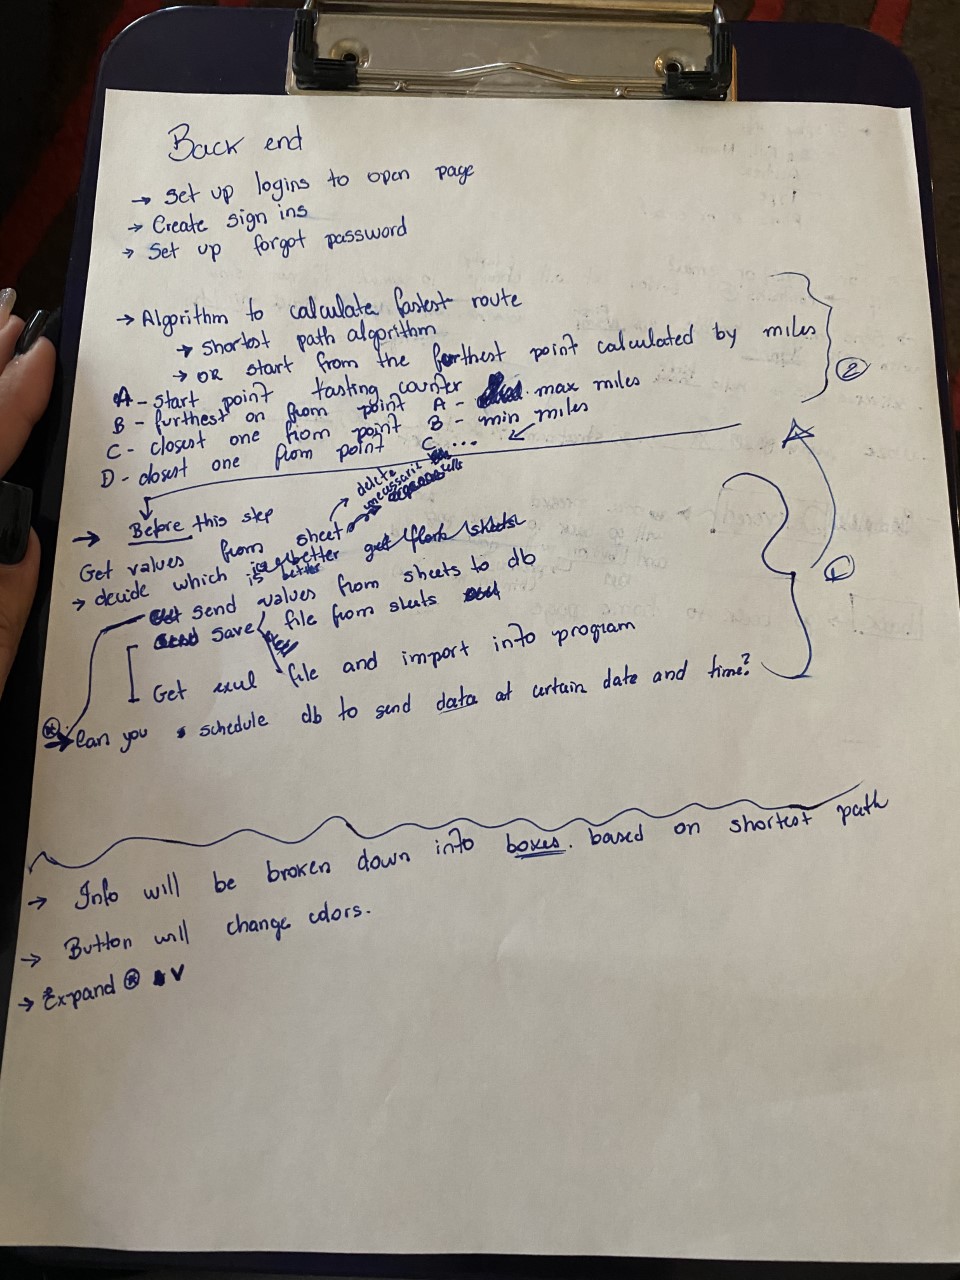 Back end
→ Set up logins to open page
→ Create sign ins
→ Set up forgot password
→ Algorithm to calculate fastest route
→ shortest path algorithm
→ OR start from the furthest point calculated by miles
A - start point tasting counter
B - furthest on from point A - max miles
C - closest one from point B - min miles
D - closest one from point C ...
2
→ Before this step
Get values from sheet → delete
→ decide which is better
send values from sheets to db
save file from sheets
Get exul file and import into program
1
→ Can you schedule db to send data at certain date and time?
→ Info will be broken down into boxes. based on shortest path
→ Button will change colors.
→ Expand v